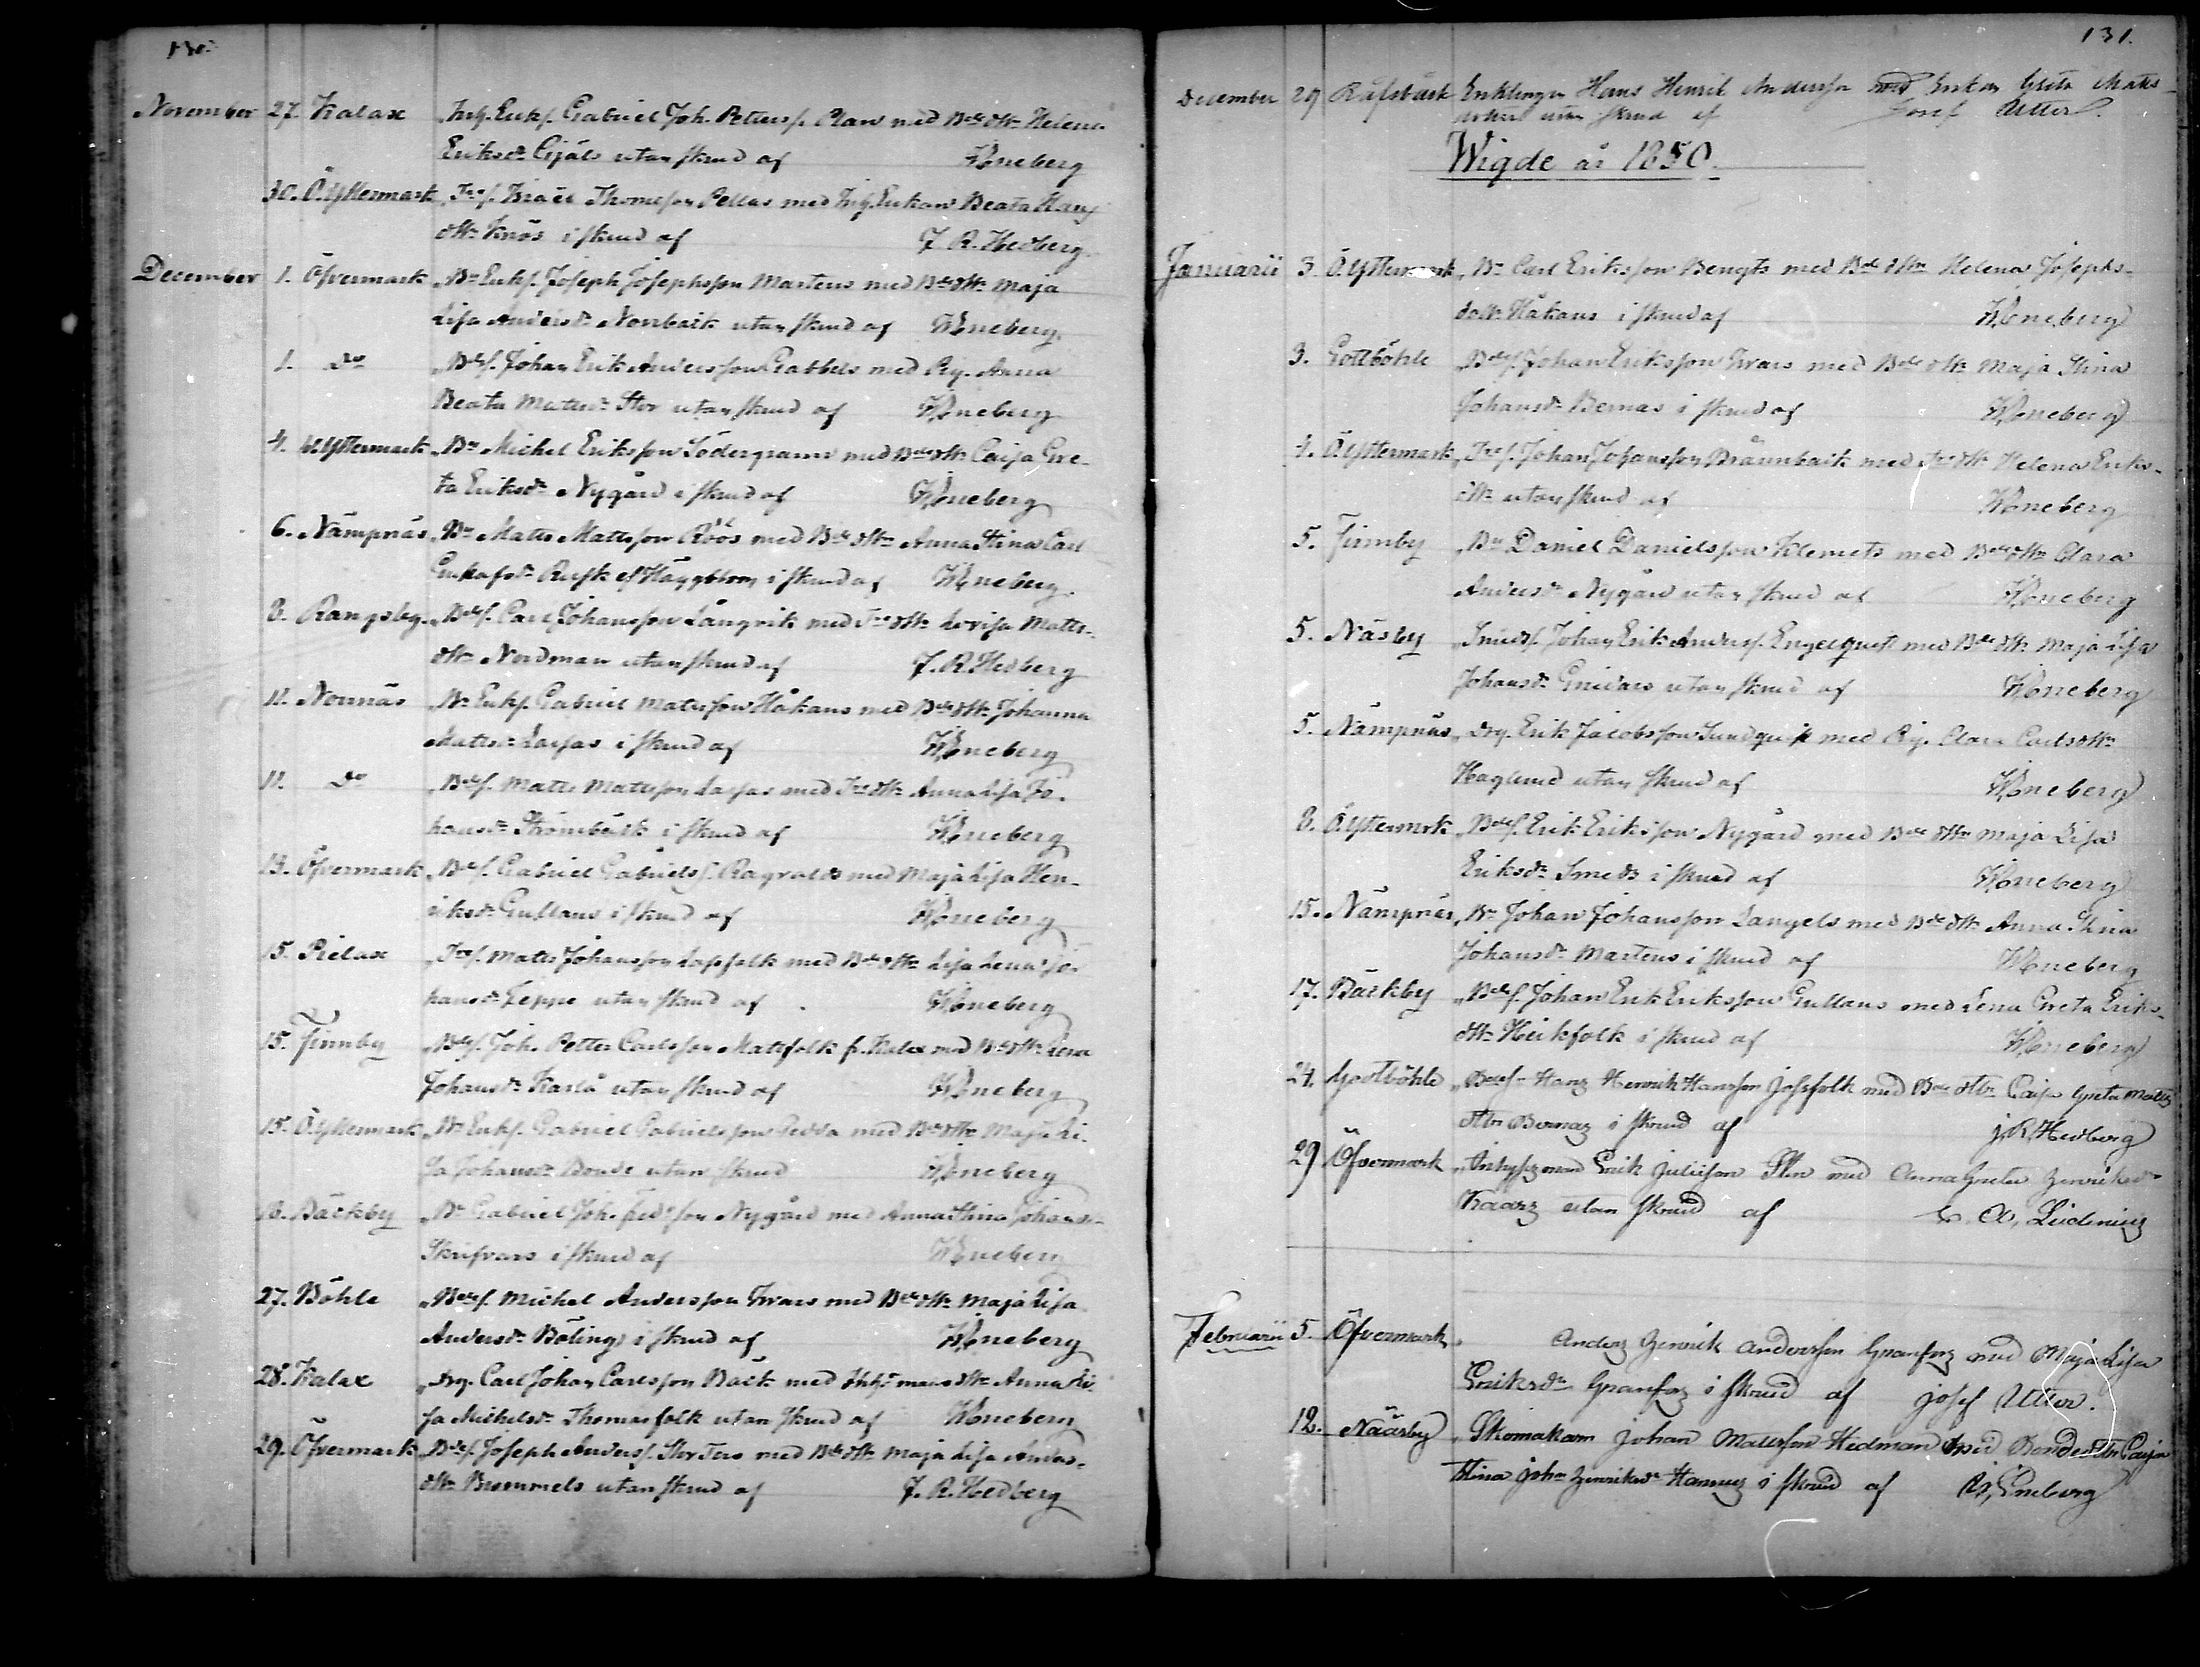 130.
November 27. Kalax Inh. Enkl. Gabriel Joh. Petterss. Plan med Bde dttr Helena
Eriksdr Gjäls utan skrud af Wæneberg
30. Ö.Yttermark Trs. Israel Thomsson Pellas med Inh. Enkan Beata Hans
dttr Knös i skrud af J. R. Hedberg
December 1. Öfvermark Bn Enkl. Joseph Josephsson Martens med Bde dttr Maja
Lisa Andersdr Norrback utan skrud af Wæneberg
1. Do Bdes. Johan Erik Andersson Gabbels med Pig. Anna
Beata Mattsdr Stor utan skrud af Wæneberg
4. Yttermark Bn Michel Eriksson Södergrann med Bde dttr Caisa Gre-
ta Eriksdr Nygård i skrud af Wæneberg
6. Nämpnäs Bn Matts Mattsson Röös med Bde dttr Anna Stina Carl
Gustafsdr Rusk el Häggblom i skrud af Wæneberg
8. Rangsby Bdes. Carl Johansson Långvik med Trs dttr Lovisa Matts-
dttr Nordman utan skrud af J. R. Hedberg
11. Nornäs Bn Enkl. Gabriel Mattsson Håkans med Bde dttr Johanna
Mattsdr Lassas i skrud af Wæneberg
11. Do Bdes. Matts Mattsson Lassas med Trs dttr Anna Lisa Jo-
hansdr Strömback i skrud af Wæneberg
13. Öfvermark Bdes. Gabriel Gabrielss. Ragvalds med Maja Lisa Hen-
riksdr Gullans i skrud af Wæneberg
15. Pielax Trs. Matts Johansson Lassfolk med Bde dttr Lisa Lena Jo-
hansdr Teppo utan skrud af Wæneberg
15. Finnby Bdes. Joh. Petter Carlsson Mattsfolk fr. Kalax med Bde dttr Lena
Johansdr Karlå utan skrud af Wæneberg
15. Ö.Yttermark Bn Enkl. Gabriel Gabrielsson Pedda med Bde dttr Maja Li-
sa Johansdr Bonde utan skrud Wæneberg
18. Bäckby Bn Gabriel Joh. Nygård med Anna Stina Johansdr
Skrifvars i skrud af Wæneberg
27. Böhle Bdes. Michel Andersson Ivars med Bde dttr Maja Lisa
Andersdr Böling i skrud af Wæneberg
28. Kalax Drg. Carl Johan Carlsson Bäck med dttr Anna Li-
sa Michelsdr Thomasfolk utan skrud af Wæneberg
29. Öfvermark Bdes. Joseph Anderss. Stor Ters med Bde dttr Maja Lisa Anders-
dttr Brommels utan skrud af J. R. Hedberg
131.
December 29 Råfsbäck Enklingen Hans Henrik Andersson med Enkan Greta Matts
utan skrud af Josef Utter.
Wigde år 1850.
Januarii 3. Ö.Yttermark Bn Carl Eriksson Bengts med Bde dttr Helena Josephs-
dottr Håkans i skrud af Wæneberg
3. Gottböhle Bdes. Johan Eriksson Ivars med Bde dttr Maja Stina
Johansdr Bernas i skrud af Wæneberg
4. Ö.Yttermark Trs. Johan Johansson Brännback med Trs dttr Helena Eriks-
dttr utan skrud af Wæneberg
5. Finnby Bn Daniel Danielsson Klemets med Bde dttr Clara
Andersdr Nygård utan skrud af Wæneberg
5. Näsby Smeds. Johan Erik Anderss. Engelqvist med Bde dttr Maja Lisa
Johansdr Gnidars utan skrud af Wæneberg
5. Nämpnäs Drg. Erik Jacobsson Sundqvist med Pig. Clara Carlsdttr
Haglund utan skrud af Wæneberg
8. Ö.Yttermrk Bdes. Erik Eriksson Nygård med Bde dttr Maja Lisa
Eriksdr Smeds i skrud af Wæneberg
15. Nämpnäs Bn Johan Johansson Langels med Bde dttr Anna Stina
Johansdr Martens i skrud af Wæneberg
17. Bäckby Bdes. Johan Erik Eriksson Gullans med Lena Greta Eriks-
dttr Heikfolk i skrud af Wæneberg
24. Gottböhle Bdes. Hans Henrik Hansson Josfolk med Bde dttr Caisa Greta Matts
dttr Bernas i skrud af J. R. Hedberg
29 Öfvermark Erik Juliisson Sten med Anna Greta Henriksdr
Kaars utan skrud af Lidenius
Februarii 5. Öfvermark Anders Henrik Andersson Granfors med Maja Lisa
Eriksdr Granfors i skrud af Josef Utter.
12. Näärby Skomakarn Johan Mattsson Hedman med Bondedttr Caisa
Stina John Henriksdr Hannus i skrud af Eneberg